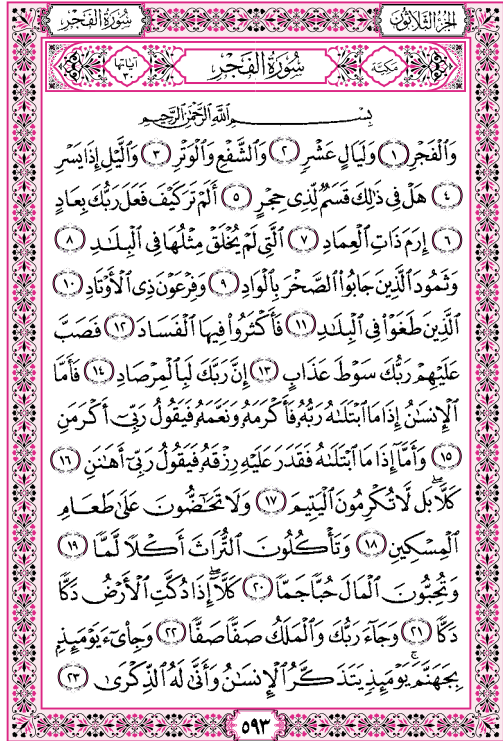 سُورَةُ الفَجْرِ الجُزْءُ الثَّلَاثُونَ
مَكِّيَّة سُورَةُ الْفَجْرِ آيَاتُهَا ٣٠
بِسْمِ اللَّهِ الرَّحْمَٰنِ الرَّحِيمِ
وَالْفَجْرِ ﴿١﴾ وَلَيَالٍ عَشْرٍ ﴿٢﴾ وَالشَّفْعِ وَالْوَتْرِ ﴿٣﴾ وَالَّيْلِ إِذَا يَسْرِ
﴿٤﴾ هَلْ فِى ذَٰلِكَ قَسَمٌ لِّذِى حِجْرٍ ﴿٥﴾ أَلَمْ تَرَ كَيْفَ فَعَلَ رَبُّكَ بِعَادٍ
﴿٦﴾ إِرَمَ ذَاتِ الْعِمَادِ ﴿٧﴾ الَّتِى لَمْ يُخْلَقْ مِثْلُهَا فِى الْبِلَٰدِ ﴿٨﴾
وَثَمُودَ الَّذِينَ جَابُوا۟ الصَّخْرَ بِالْوَادِ ﴿٩﴾ وَفِرْعَوْنَ ذِى الْأَوْتَادِ ﴿١٠﴾
الَّذِينَ طَغَوْا۟ فِى الْبِلَٰدِ ﴿١١﴾ فَأَكْثَرُوا۟ فِيهَا الْفَسَادَ ﴿١٢﴾ فَصَبَّ
عَلَيْهِمْ رَبُّكَ سَوْطَ عَذَابٍ ﴿١٣﴾ إِنَّ رَبَّكَ لَبِالْمِرْصَادِ ﴿١٤﴾ فَأَمَّا
الْإِنسَٰنُ إِذَا مَا ابْتَلَىٰهُ رَبُّهُ فَأَكْرَمَهُ وَنَعَّمَهُ فَيَقُولُ رَبِّىٓ أَكْرَمَنِ
﴿١٥﴾ وَأَمَّآ إِذَا مَا ابْتَلَىٰهُ فَقَدَرَ عَلَيْهِ رِزْقَهُ فَيَقُولُ رَبِّىٓ أَهَٰنَنِ ﴿١٦﴾
كَلَّا ۖ بَل لَّا تُكْرِمُونَ الْيَتِيمَ ﴿١٧﴾ وَلَا تَحَٰٓضُّونَ عَلَىٰ طَعَامِ
الْمِسْكِينِ ﴿١٨﴾ وَتَأْكُلُونَ التُّرَاثَ أَكْلًا لَّمًّا ﴿١٩﴾
وَتُحِبُّونَ الْمَالَ حُبًّا جَمًّا ﴿٢٠﴾ كَلَّآ ۖ إِذَا دُكَّتِ الْأَرْضُ دَكًّا
دَكًّا ﴿٢١﴾ وَجَآءَ رَبُّكَ وَالْمَلَكُ صَفًّا صَفًّا ﴿٢٢﴾ وَجِا۟ىٓءَ يَوْمَئِذٍۭ
بِجَهَنَّمَ ۚ يَوْمَئِذٍ يَتَذَكَّرُ الْإِنسَٰنُ وَأَنَّىٰ لَهُ الذِّكْرَىٰ ﴿٢٣﴾
٥٩٣